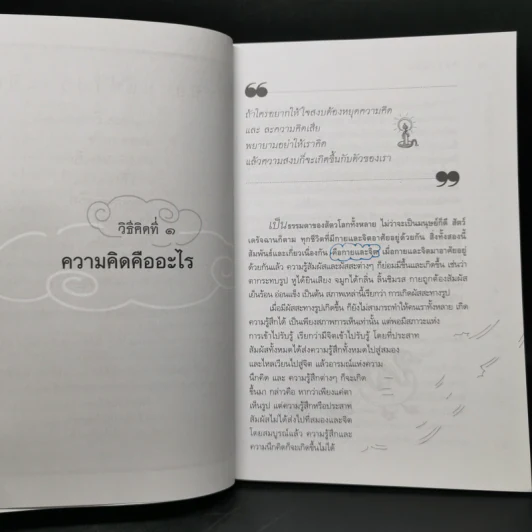 วิธีคิดที่ ๑
ความคิดคืออะไร
❝
ถ้าใครอยากให้ใจสงบต้องหยุดความคิด
และ ละความคิดเสีย
พยายามอย่าให้เราคิด
แล้วความสงบก็จะเกิดขึ้นกับตัวของเรา
❞
เป็นธรรมดาของสัตว์โลกทั้งหลาย ไม่ว่าจะเป็นมนุษย์ก็ดี สัตว์
เดรัจฉานก็ตาม ทุกชีวิตที่มีกายและจิตอาศัยอยู่ด้วยกัน สิ่งทั้งสองนี้
สัมพันธ์และเกี่ยวเนื่องกัน คือกายและจิต เมื่อกายและจิตอาศัยอยู่
ด้วยกันแล้ว ความรู้สัมผัสและผัสสะต่างๆ ก็ย่อมมีขึ้นและเกิดขึ้น เช่นว่า
ตากระทบรูป หูได้ยินเสียง จมูกได้กลิ่น ลิ้นชิมรส กายถูกต้องสัมผัส
เย็นร้อน อ่อนแข็ง เป็นต้น สภาพเหล่านี้เรียกว่า การเกิดผัสสะทางรูป
เมื่อมีผัสสะทางรูปเกิดขึ้น ก็ยังไม่สามารถทำให้คนเราทั้งหลาย เกิด
ความรู้สึกได้ เป็นเพียงสภาพการเห็นเท่านั้น แต่พอมีสภาวะแห่ง
การเข้าไปรับรู้ เรียกว่ามีจิตเข้าไปรับรู้ โดยที่ประสาท
สัมผัสทั้งหมดได้ส่งความรู้สึกทั้งหมดไปสู่สมอง
และไหลเวียนไปสู่จิต แล้วอารมณ์แห่งความ
นึกคิด และ ความรู้สึกต่างๆ ก็จะเกิด
ขึ้นมา กล่าวคือ หากว่าเพียงแค่ตา
เห็นรูป แต่ความรู้สึกหรือประสาท
สัมผัสไม่ได้ส่งไปที่สมองและจิต
โดยสมบูรณ์แล้ว ความรู้สึกและ
ความนึกคิดก็จะเกิดขึ้นไม่ได้